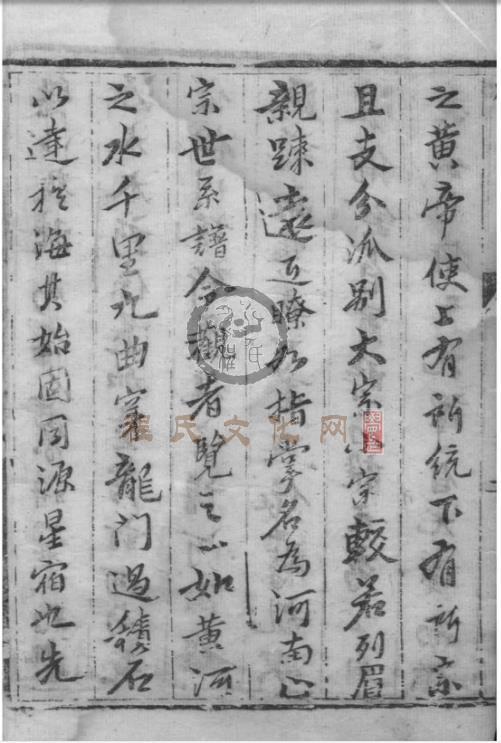 之黄帝使上有所統下有所宗
且支分派別大宗小宗較若列眉
親踈遠近瞭如指掌名為河南正
宗世系譜令觀者覽之如黄河
之水千里九曲鑿龍門過積石
以達於海其始固同源星宿也先
程氏文化网